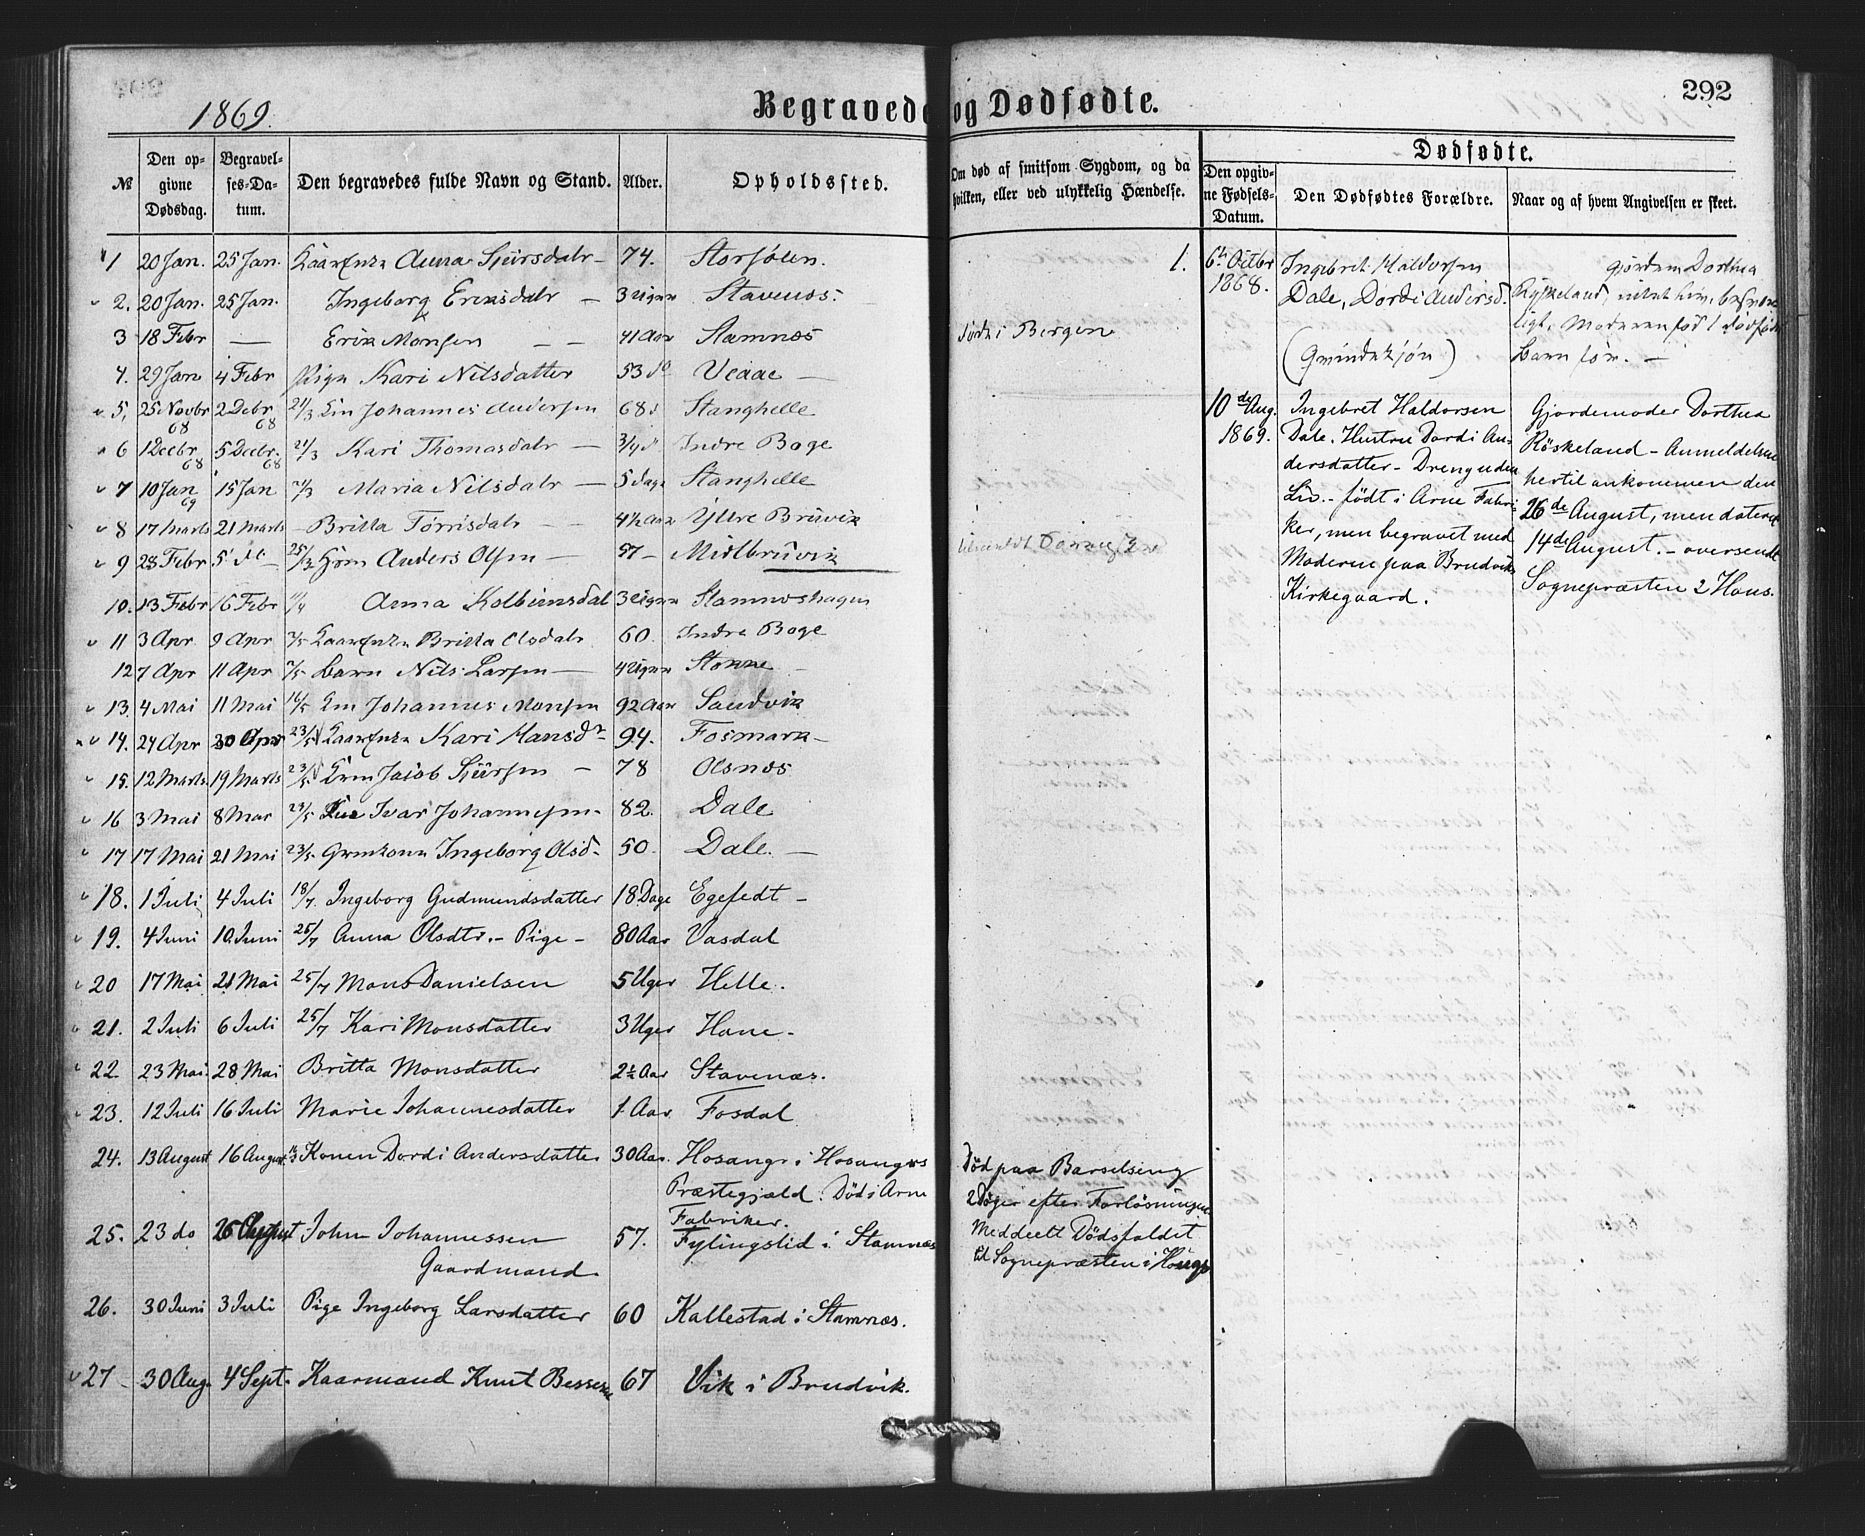 292
1869.
Begravede og Dødfødte.
Dødfødte.
№
Den opgivne Dødsdag.
Begravelses-Datum.
Den begravedes fulde Navn og Stand.
Alder.
Opholdssted.
Om død af smitsom Sygdom, og da hvilken, eller ved ulykkelig Hændelse.
Den opgivne Fødsels-Datum.
Den Dødfødtes Forældre.
Naar og af hvem Angivelsen er skeet.
1 20 Jan. 25 Jan. Anna Sjursdatr 74.
2. 20 Jan. 25 Jan. Ingeborg Eriksdatr 3 Stavenes.
3 18 Febr — Erik Monsen 41 Aar Stamnæs døde i Bergen
4. 29 Jan 4 Febr Pige Kari Nilsdatter 53 do
5. 25 Novbr 68 2 Decbr 68 21/3 Johannes Andersen 68 Stanghelle
6 1 Decbr 68 5 Decbr. 68 21/3 Kari Thomasdatr 3/4 Indre Boge
7 10 Jan 69 15 Jan 21/3 Maria Nilsdatr 5 dage Stanghelle
8 17 Marts 21 Marts Britta Torrisdatr 4½ Aar Yttre Bruvik
9 28 Febr 5 25/3 Anders Olsen 57 Midtbruvik
10. 13 Febr 16 Febr Anna 3 Stamneshagen
11 3 Apr 9 Apr Britta Olsdatr 60. Indre Boge
12 7 Apr 11 Apr Barn Nils Larsen 4
13. 4 Mai 11 Mai 16/5 Johannes Monsen 92 Aar Sandvik
14. 24 Apr 30 Apr 23/5 Kari Hansdr 94. Fosmark
15. 12 Marts 19 Marts 23/5 Jacob Sjursen 78 Olsnes
16 3 Mai 8 Mai 23/5 Ivar Johannesen 82. Dale
17 17 Mai 21 Mai 23/5 Ingeborg Olsd. 50. Dale.
18. 1 Juli 4 Juli 18/7 Ingeborg Gudmundsdatter 18 Dage
19. 4 Juni 10 Juni 25/7 Anna Olsdtr. - Pige - 80 Aar Vasdal
20 17 Mai 21 Mai 25/7 Mons Danielsen 5 Uger Helle.
21. 2 Juli 6 Juli 25/7 Kari Monsdatter 3 Uger
22. 23 Mai. 28 Mai Britta Monsdatter 2½ Aar Stavenæs.
23. 12 Juli 16 Juli Marie Johannesdatter 1 Aar Fosdal
24. 13 August 16 August Konen Dordi Andersdatter 30 Aar. Hosanger i Hosangers
Præstegjæld. Død i Arne
Fabriker.
Død paa Barselseng
2 Døger efter Forløsningen.
Meddeelt Dødsfaldet
til Sognepræsten i
25. 23 do 26 August John Johannessen 57. Fylingslid i Stamnæs
Gaardmand
26. 30 Juni 3 Juli Pige Ingeborg Larsdatter 60 Kallestad i Stamnæs.
27 30 Aug. 4 Sept. Kaarmand Knut 67 Vik i Brudvik.
1. 6te Octbr
1868.
Ingebret Haldorsen
Dale, Dordi Andersd.
(Qvindekjøn)
Dorthea
barn før.
10de Aug.
1869.
Ingebret Haldorsen
Dale. Hustru Dordi An-
dersdatter - Dreng uden
Liv. - født i Arne Fabri-
ker, men begravet med
Moderen paa Brudviks
Kirkegaard.
Gjordemoder Dorthea
Röskeland - Anmeldelsen
hertil ankommen den
26de August, men dateret
14de August. - oversendt
Sognepræsten 2 Hous.